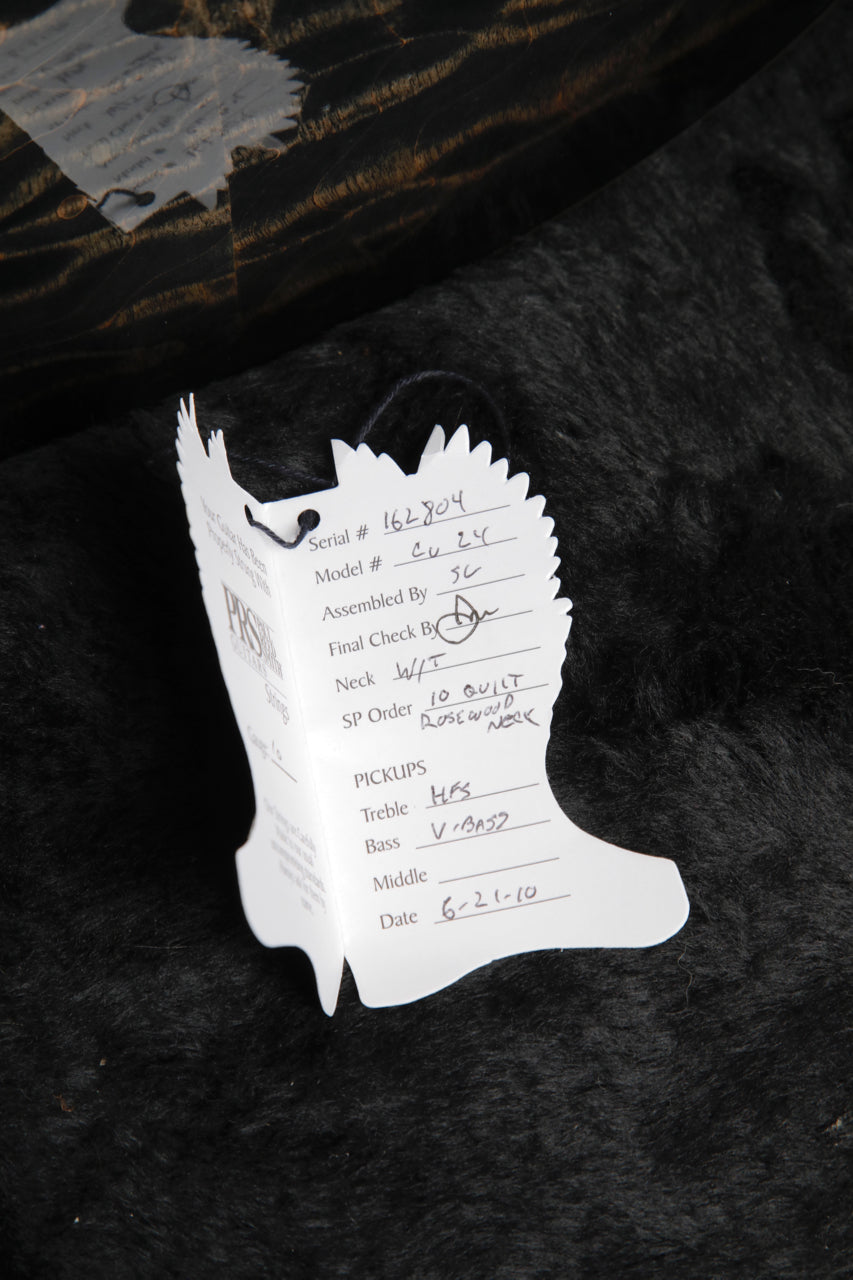 Your Guitar Has Been
Properly Strung With
PRS
GUITARS
Strings
Serial # 162804
Model # Cu 24
Assembled By SC
Final Check By
Neck W/T
SP Order 10 QUILT
ROSEWOOD
NECK
PICKUPS
Treble HFS
Bass V-BASS
Middle
Date 6-21-10